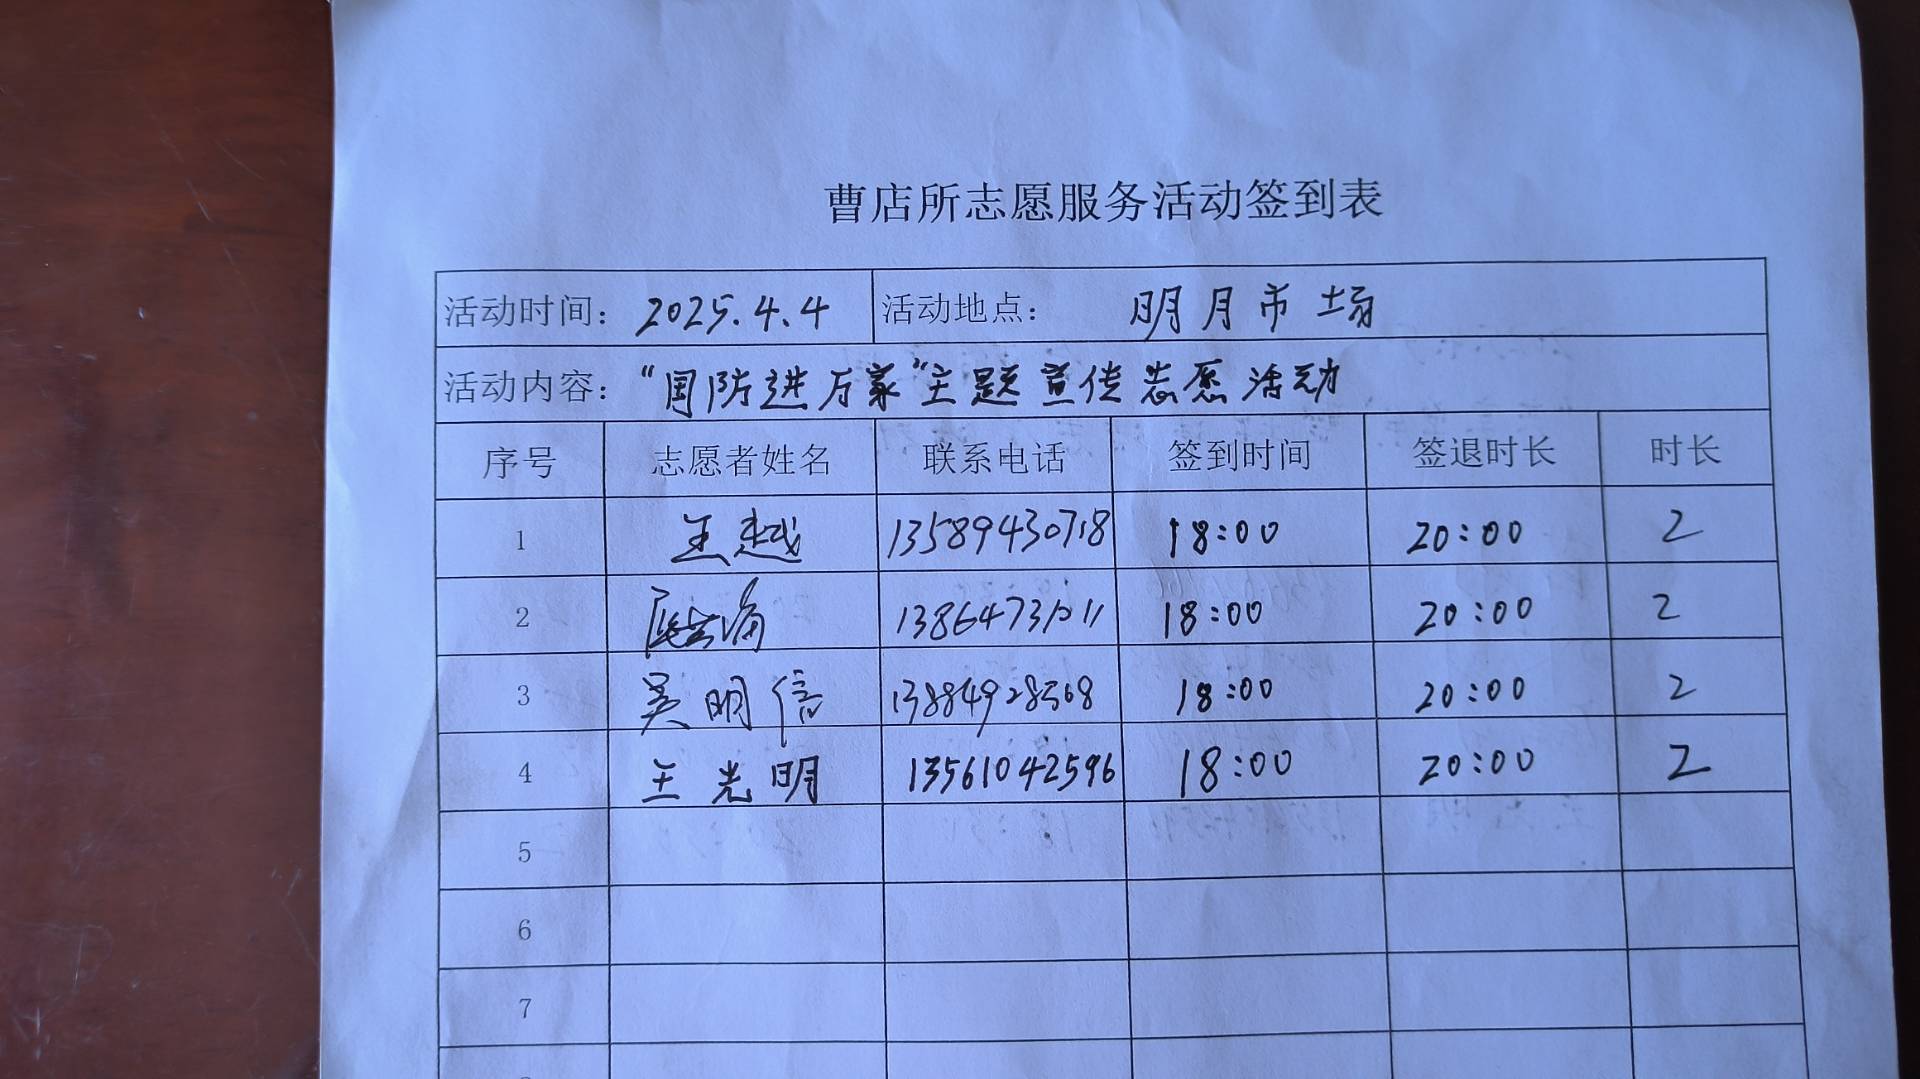 曹店所志愿服务活动签到表
活动时间: 2025.4.4 活动地点: 明月市场
活动内容: "国防进万家"主题宣传志愿活动
序号 志愿者姓名 联系电话 签到时间 签退时长 时长
1 王越 13589430718 18:00 20:00 2
2 18:00 20:00 2
3 吴明信 13884928568 18:00 20:00 2
4 王光明 13561042596 18:00 20:00 2
5
6
7